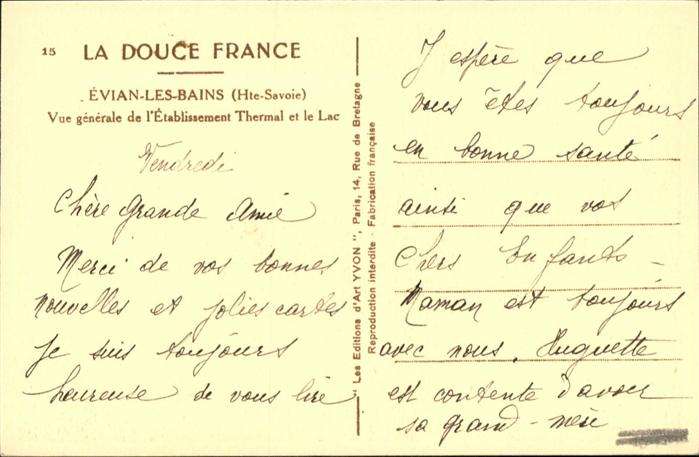 15 LA DOUCE FRANCE
ÉVIAN-LES-BAINS (Hte-Savoie)
Vue générale de l'Établissement Thermal et le Lac
Vendredi
Chère Grande Amie
Merci de vos bonnes
nouvelles et jolies cartes
Je suis toujours
heureuse de vous lire
"Les Editions d'Art YVON", Paris, 14, Rue de Bretagne
Reproduction interdite - Fabrication française
J espère que
vous êtes toujours
en bonne santé
ainsi que vos
Chers Enfants -
Maman est toujours
avec nous. Huguette
est contente d'avoir
sa grand-mère